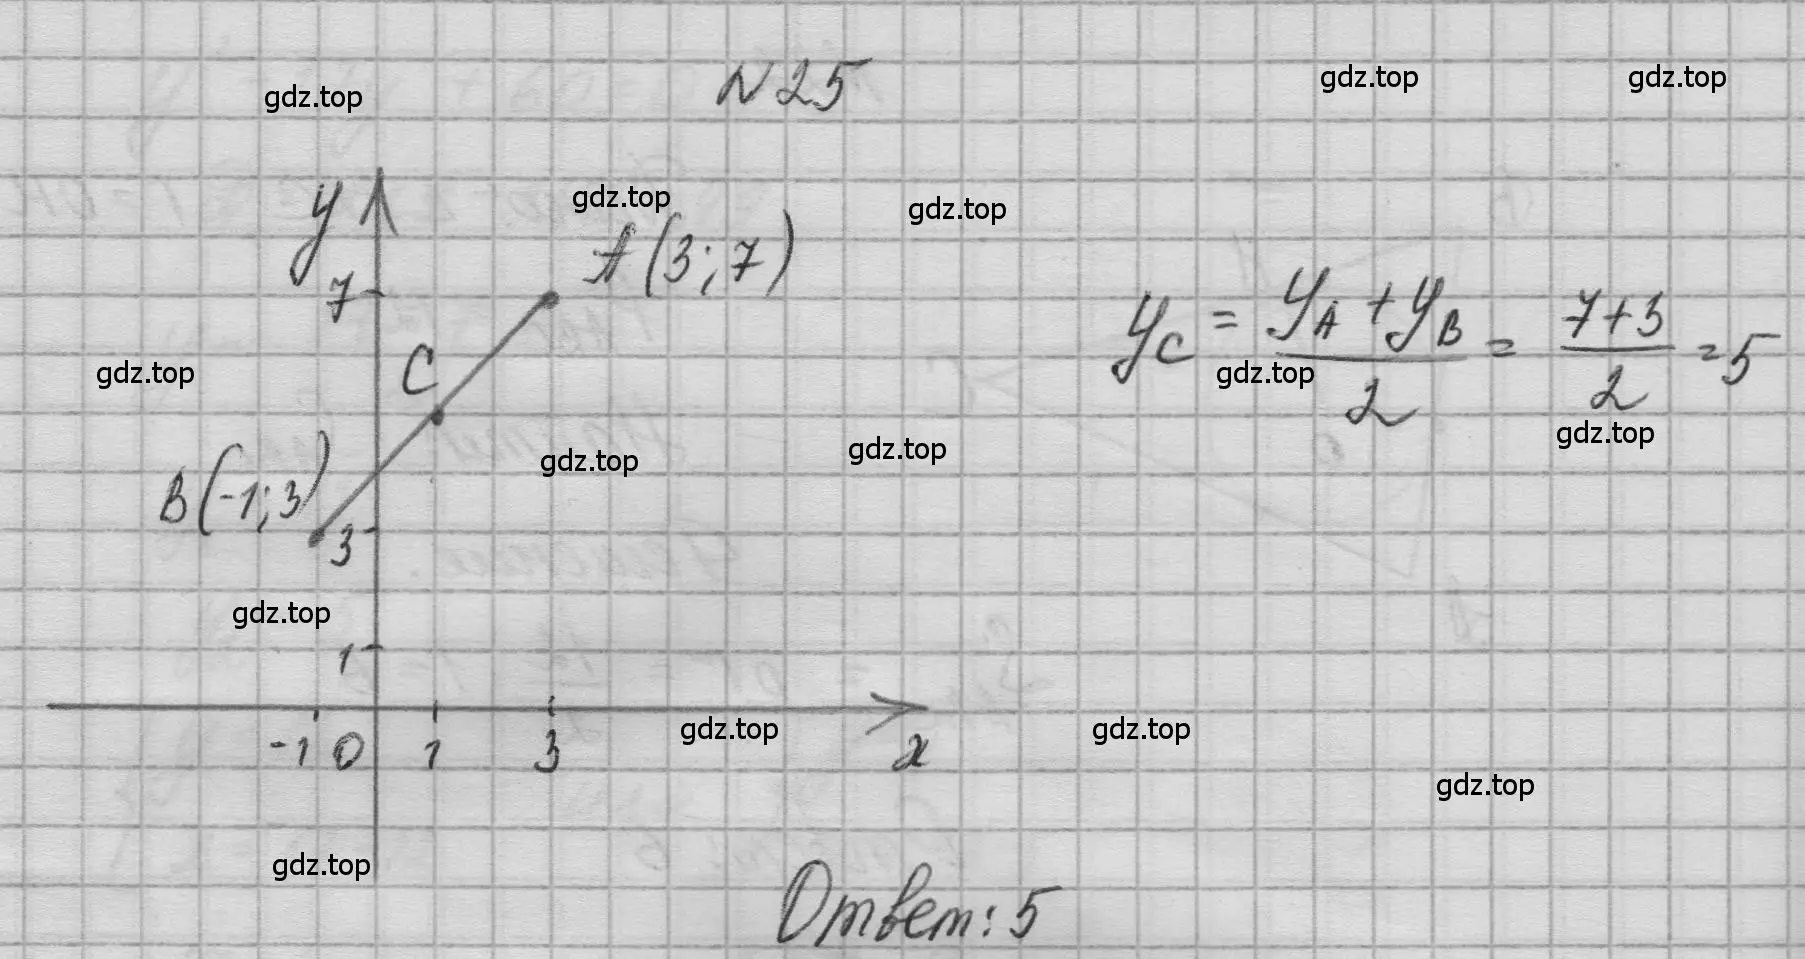 N 25
gdz.top
gdz.top
gdz.top
y
gdz.top
gdz.top
A (3; 7)
7
y_C = (y_A + y_B)/2 = (7+3)/2 = 5
C
gdz.top
gdz.top
gdz.top
gdz.top
gdz.top
B (-1; 3)
3
gdz.top
1
-1 0 1 3 x
gdz.top
gdz.top
gdz.top
gdz.top
Ответ: 5